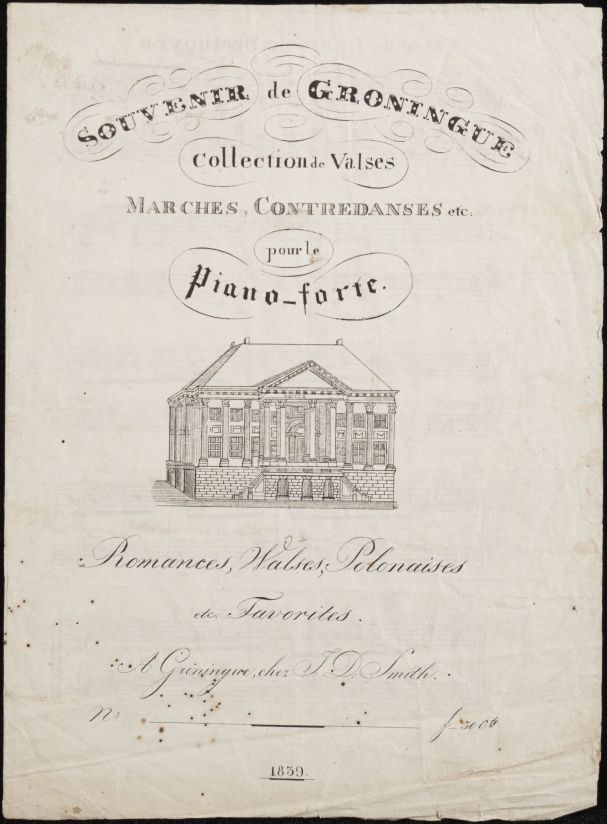 SOUVENIR de GRONINGUE
Collection de Valses
MARCHES, CONTREDANSES etc:
pour le
Piano-forte.
Romances, Walses, Polonaises
etc: Favorites.
A Groningue, chez J. D. Smith.
No
f -30 Cts
1839.